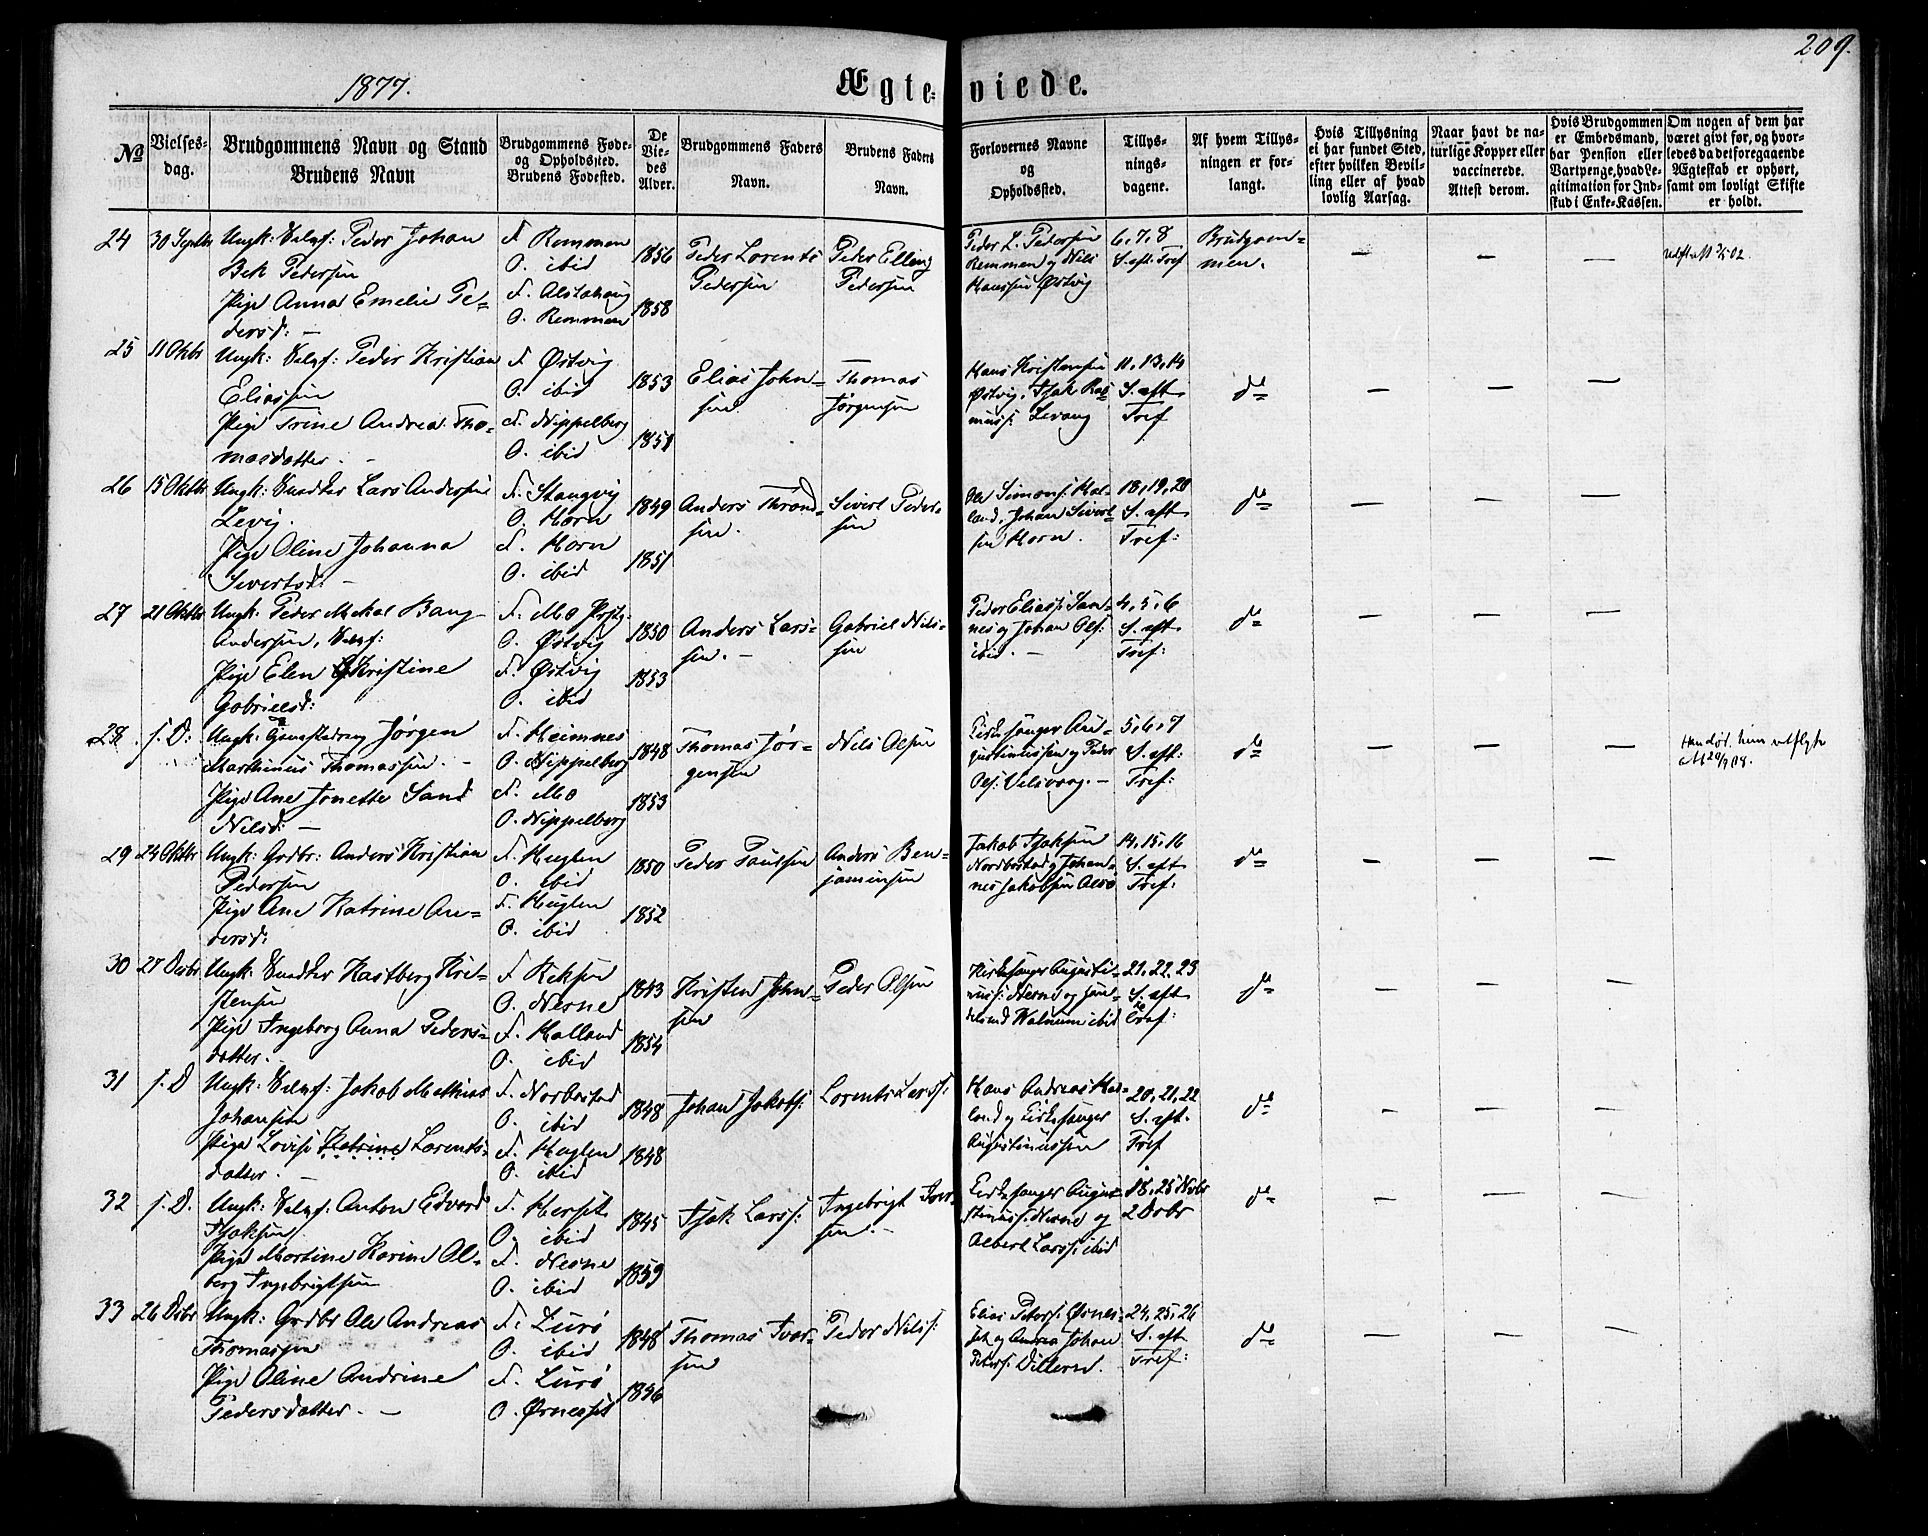 209.
1877.
Ægte- viede.
№
Vielses-
dag.
Brudgommens Navn og Stand
Brudens Navn
Brudgommens Føde-
og Opholdssted.
Brudens Fødested.
De
Vie-
des
Alder.
Brudgommens Faders
Navn.
Brudens Faders
Navn.
Forlovernes Navne
og
Opholdssted.
Tillys-
nings-
dagene.
Af hvem Tillys-
ningen er for-
langt.
Hvis Tillysning
ei har fundet Sted,
efter hvilken Bevil-
ling eller af hvad
lovlig Aarsag.
Naar havt de na-
turlige Kopper eller
vaccinerede.
Attest derom.
Hvis Brudgommen
er Embedsmand,
har Pension eller
Vartpenge, hvad Le-
gitimation for Ind-
skud i Enke-Kassen.
Om nogen af dem har
været givt før, og hvor-
ledes da det foregaaende
Ægteskab er ophørt,
samt om lovligt Skifte
er holdt.
24
30 Septbr
Ungk: Selvf: Peder Johan
Bek Pedersen
Pige Anna Emelie Pe-
dersd: —
F. Remmen
O. ibid
F. Alstahaug
O. Remmen
1856
1858
Peder Lorents
Pedersen
Peder Elling
Pedersen
Peder L. Pedersen
Remmen og Nils
Hanssen Østvig
6, 7, 8
S. eft. Tref
Brudgom-
men.
—
—
—
25
11 Oktbr
Ungk: Selvf: Peder Kristian
Eliassen
Pige Trine Andrea Tho-
masdatter. —
F. Østvig
O. ibid
F. Nippelberg
O. ibid
1853
1851
Elias John-
sen
Thomas
Jørgensen
Hans Kristensen
Østvig, Isak Ras-
muss: Levang
11, 13, 14
S. eft
Tref
do
—
—
—
26
15 Oktbr
Ungk: Snedker Lars Andersen
Levig.
Pige Oline Johanna
Sivertsd: —
F. Stangvig
O. Horn
F. Horn
O. ibid
1849
1851
Anders Thrond-
sen.
Sivert Peder-
sen
Ole Simons: Hal-
land, Johan Sivert-
sen Horn.
18, 19, 20
S. eft
Tref:
do
—
—
—
27
21 Oktbr
Ungk: Peder Mekal Bang
Andersen, Selvf:
Pige Elen Kristine
Gabrielsd:
F. Mo Prstg.
O. Østvig
F. Østvig
O. ibid
1850
1853
Anders Lars-
sen. —
Gabriel Nils-
sen
Peder Eliass: San-
nes og Johan Ols:
ibid. —
4, 5, 6
S. eft
Tref:
do
—
—
—
28
s. D.
Ungk: Jørgen
Marthinus Thomassen. —
Pige Ane Jonette Sand
Nilsd: —
F. Heimnes
O. Nippelberg
F. Mo
O. Nippelberg
1848
1853
Thomas Jør-
gensen
Nils Olsen
Kirkesanger Au-
gustinussen og Peder
Ols: Valsvaag. —
5, 6, 7
S. eft:
Tref:
do
—
—
—
29
24 Oktbr
Ungk: Grdbr: Anders Kristian
Pedersen
Pige Ane Katrine An-
dersd:
F. Huglen
O. ibid
F. Huglen
O. ibid
1850
1852
Peder Paulsen
Anders Ben-
jaminsen
Jakob Isaksen
Nordbostad og Johan-
nes Jakobsen
14, 15, 16
S. eft
Tref:
do
—
—
—
30
27 Decbr
Ungk: Snedker Hastberg Kri-
stensen
Pige Ingeborg Anna Peders-
datter. —
O. Nesne
F. Halland
O. ibid
1843
1854
Kristen John-
sen
Peder Olsen
Kirkesanger Augusti-
nuss: Nesne og
Walnum ibid
21, 22, 23
S. eft
Tref:
do
—
—
—
31
s. D
Ungk: Selvf: Jakob Mathias
Johansen
Pige Lovise Katrine Lorents-
datter. —
F. Norbostad
O. ibid
F. Huglen
O. ibid
1848
1848
Johan Jakobs:
Lorents Larss:
Hans Andreas Hal-
land og Kirkesanger
Augustinussen
20, 21, 22
S. eft.
Tref
do
—
—
—
32
s. D.
Ungk: Selvf: Anton Edvard
Isaksen
Pige Martine Karine Al-
berg Ingebrigtsen
F. Herset
O. ibid
F. Nesne
O. ibid
1845
1859
Isak Larss:
Ingebrigt Iver-
sen. —
Kirkesanger Augu-
stinuss: Nesne og
Albert Larss: ibid
18, 25 Novbr
2 Decbr
do
—
—
—
33
26 Decbr
Ungk: Grdbr Ole Andreas
Thomassen
Pige Oline Andrine
Pedersdatter. —
F. Lurø
O. ibid
F. Lurø
O. Ørnesset
1848
1856
Thomas Iver-
sen
Peder Nils:
Elias Peters: Ørnes-
set og Andrea Johan
Peters:
24, 25, 26
S. eft
Tref:
do
—
—
—